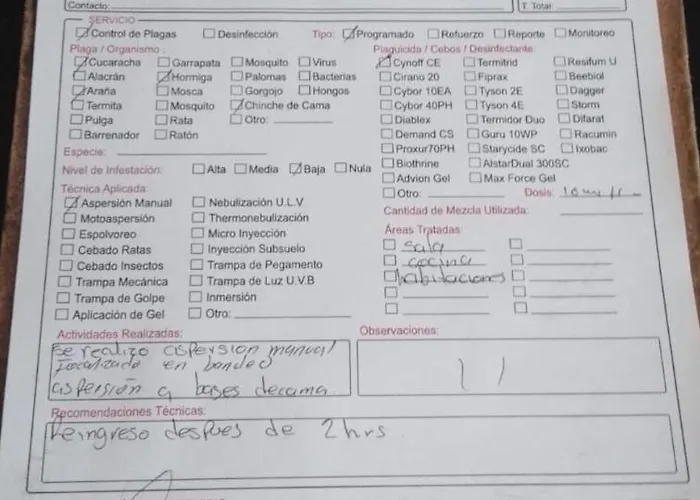 Contacto: T. Total:
SERVICIO
Control de Plagas Desinfección Tipo: Programado Refuerzo Reporte Monitoreo
Plaga / Organismo: Plaguicida / Cebos / Desinfectante:
Cucaracha Garrapata Mosquito Virus Cynoff CE Termitrid Resifum U
Alacrán Hormiga Palomas Bacterias Cirano 20 Fiprax Beebiol
Araña Mosca Gorgojo Hongos Cybor 10EA Tyson 2E Dagger
Termita Mosquito Chinche de Cama Cybor 40PH Tyson 4E Storm
Pulga Rata Otro: Diablex Termidor Duo Difarat
Barrenador Ratón Demand CS Guru 10WP Racumin
Especie: Proxur70PH Starycide SC Ixobac
Nivel de Infestación: Alta Media Baja Nula Biothrine AlstarDual 300SC
Técnica Aplicada: Advion Gel Max Force Gel
Aspersión Manual Nebulización U.L.V Otro: Dosis:
Motoaspersión Thermonebulización Cantidad de Mezcla Utilizada:
Espolvoreo Micro Inyección Áreas Tratadas:
Cebado Ratas Inyección Subsuelo sala
Cebado Insectos Trampa de Pegamento cocina
Trampa Mecánica Trampa de Luz U.V.B habitaciones
Trampa de Golpe Inmersión
Aplicación de Gel Otro:
Actividades Realizadas: Observaciones:
se realizo aspersion manual
focalizada en bandeo
aspersión a bases de cama
Recomendaciones Técnicas:
Reingreso despues de 2 hrs